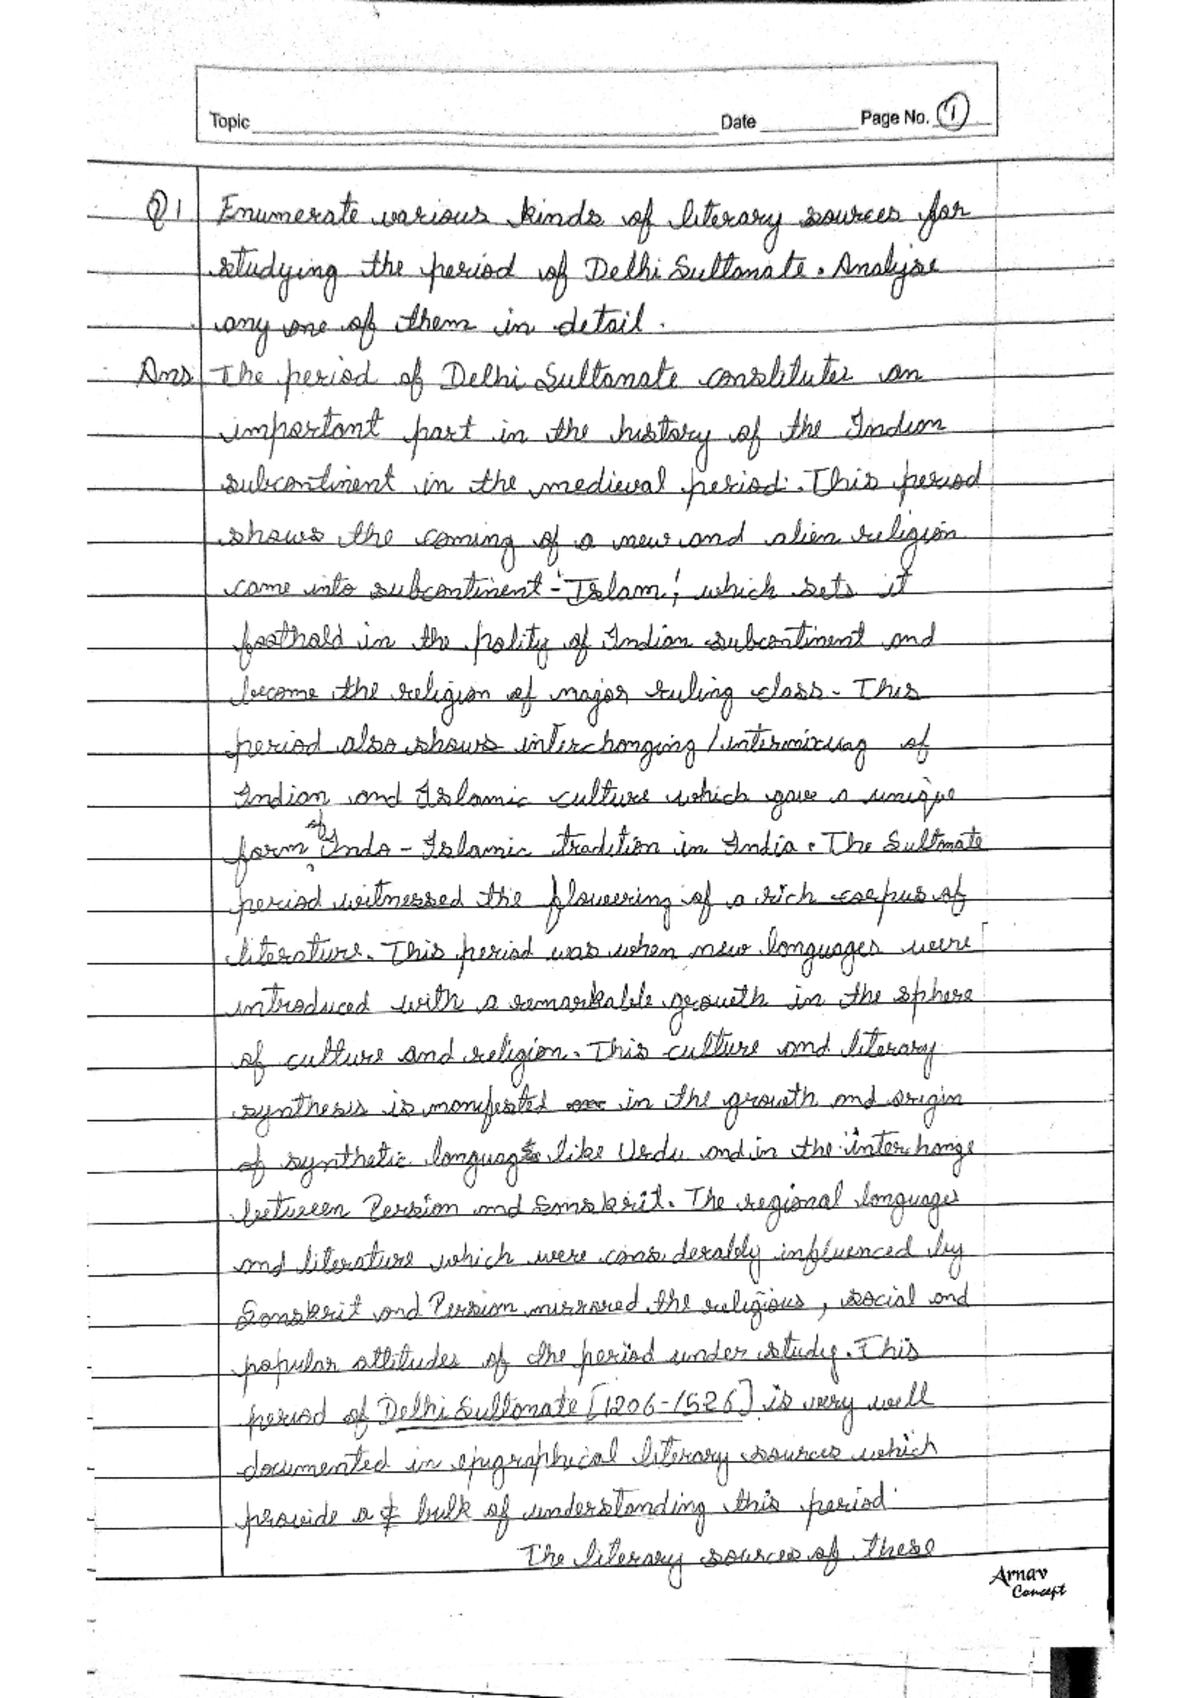 Topic Date Page No. 1
Q1 Enumerate various kinds of literary sources for
studying the period of Delhi Sultanate. Analyse
any one of them in detail.
Ans The period of Delhi Sultanate constitutes an
important part in the history of the Indian
subcontinent in the medieval period. This period
shows the coming of a new and alien religion
came into subcontinent - 'Islam', which sets it
foothold in the polity of Indian subcontinent and
become the religion of major ruling class. This
period also shows interchanging / intermixing of
Indian and Islamic culture which gave a unique
form of Indo - Islamic tradition in India. The Sultanate
period witnessed the flowering of a rich corpus of
literature. This period was when new languages were
introduced with a remarkable growth in the sphere
of culture and religion. This culture and literary
synthesis is manifested in the growth and origin
of synthetic language like Urdu and in the interchange
between Persian and Sanskrit. The regional languages
and literature which were considerably influenced by
Sanskrit and Persian mirrored the religious, social and
popular attitudes of the period under study. This
period of Delhi Sultanate [1206-1526] is very well
documented in epigraphical literary sources which
provide a bulk of understanding this period.
The literary sources of these
Arnav
Concept